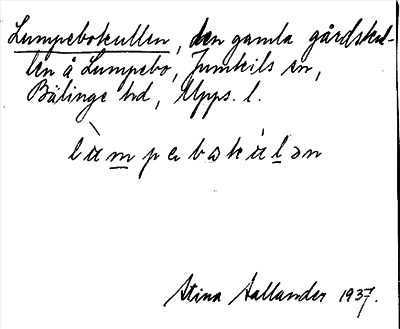 Lumpebokullen, den gamla gårdskul-
len å Lumpebo, Jumkils sn,
Bälinge hd, Upps. l.
lùmpebəkúlən
Stina Aallander 1937.